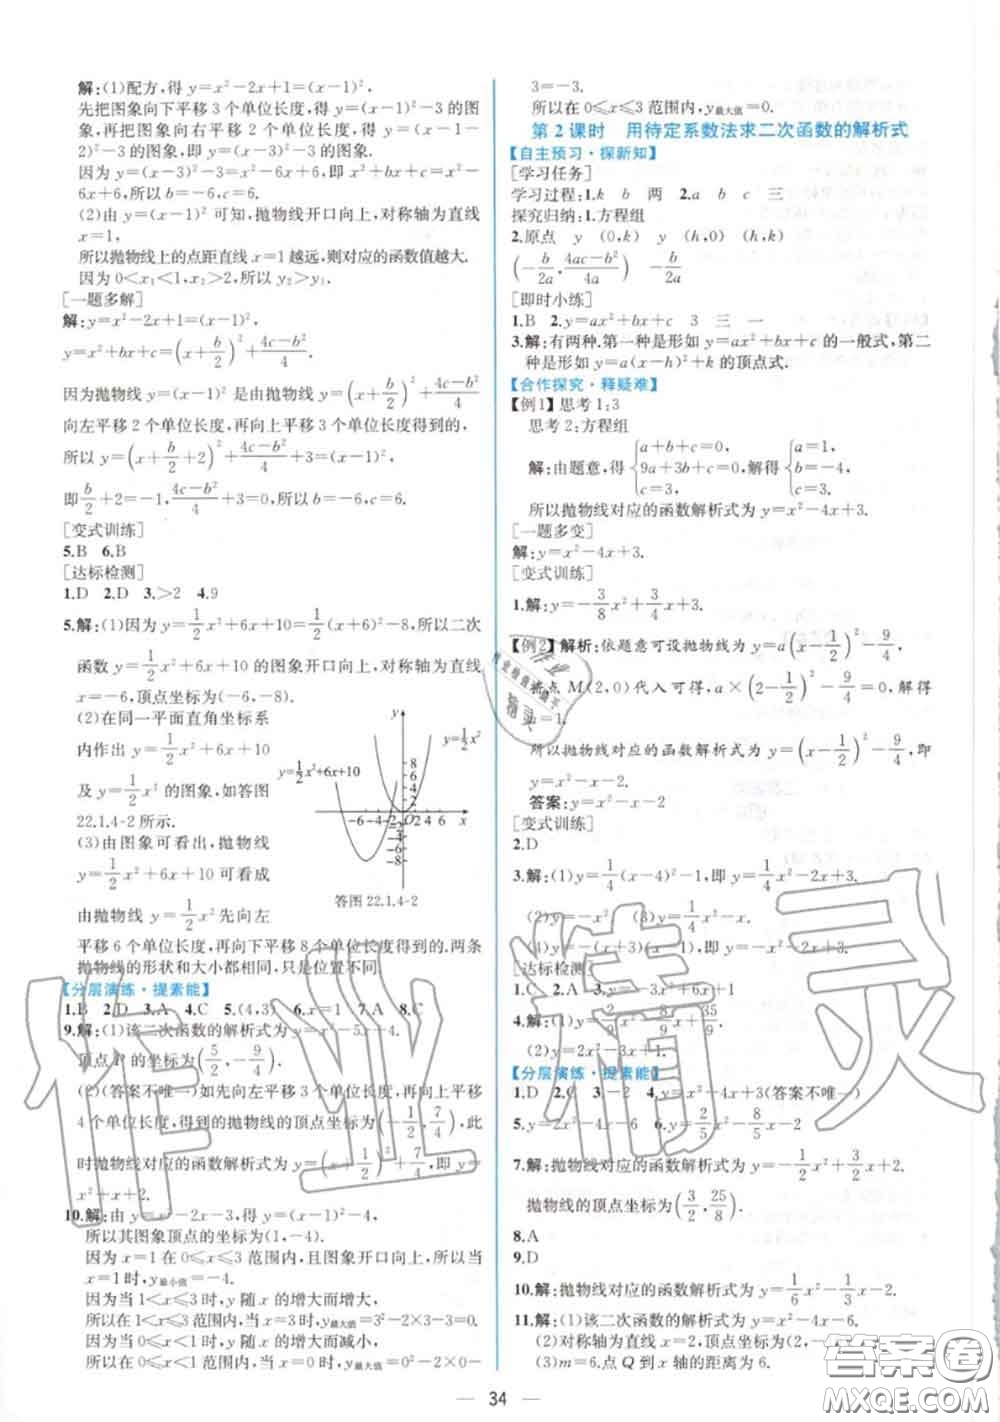 解:(1)配方,得 y=x²-2x+1=(x-1)².
先把图象向下平移 3 个单位长度,得 y=(x-1)²-3 的图
象,再把图象向右平移 2 个单位长度,得 y=(x-1-2)²-3=(x-3)²-3 的图象,即所求图象.
因为 y=(x-3)²-3=x²-6x+6,即 x²+bx+c=x²-6x+6,所以 b=-6,c=6.
(2)由 y=(x-1)² 可知,抛物线开口向上,对称轴为直线
x=1,
所以抛物线上的点距直线 x=1 越远,则对应的函数值越大.
因为 0<x₁<1,x₂>2,所以 y₂>y₁.
[一题多解]
解:y=x²-2x+1=(x-1)²,
y=x²+bx+c=(x+b/2)²+(4c-b²)/4.
因为抛物线 y=(x-1)² 是由抛物线 y=(x+b/2)²+(4c-b²)/4
向左平移 2 个单位长度,再向上平移 3 个单位长度得到的,
所以 y=(x+b/2+2)²+(4c-b²)/4+3=(x-1)²,
即 b/2+2=-1,(4c-b²)/4+3=0,所以 b=-6,c=6.
[变式训练]
5.B 6.B
[达标检测]
1.D 2.D 3.>2 4.9
5.解:(1)因为 y=1/2x²+6x+10=1/2(x+6)²-8,所以二次
函数 y=1/2x²+6x+10 的图象开口向上,对称轴为直线
x=-6,顶点坐标为(-6,-8).
(2)在同一平面直角坐标系
内作出 y=1/2x²+6x+10
及 y=1/2x² 的图象,如答图
22.1.4-2 所示.
(3)由图象可看出,抛物线
y=1/2x²+6x+10 可以看成
由抛物线 y=1/2x² 先向左
平移 6 个单位长度,再向下平移 8 个单位长度得到的.两条
抛物线的形状和大小都相同,只是位置不同.
y=1/2x²
y=1/2x²+6x+10
y
8
6
4
2
-6 -4 -2 O 2 4 6 x
-2
-4
-6
-8
答图 22.1.4-2
【分层演练·提素能】
1.B 2.D 3.A 4.C 5.(4,3) 6.x=1 7.A 8.C
9.解:(1)该二次函数的解析式为 y=x²-5x+4.
顶点 P 的坐标为(5/2,-9/4).
(2)(答案不唯一)如先向左平移 3 个单位长度,再向上平移
4 个单位长度,得到的抛物线的顶点坐标为(-1/2,7/4),此
时抛物线对应的函数解析式为 y=(x+1/2)²+7/4,即 y=
x²+x+2.
10.解:由 y=x²-2x-3,得 y=(x-1)²-4,
所以其图象顶点的坐标为(1,-4).
因为 x=1 在 0≤x≤3 范围内,且图象开口向上,所以当
x=1 时,y最小值=-4.
因为当 1<x≤3 时,y 随 x 的增大而增大,
所以在 1<x≤3 范围内,当 x=3 时,y最大值=3²-2×3-3=0.
因为当 0≤x≤1 时,y 随 x 的增大而减小,
所以在 0≤x≤1 范围内,当 x=0 时,y最大值=0²-2×0-
3=-3.
所以在 0≤x≤3 范围内,y最大值=0.
第 2 课时 用待定系数法求二次函数的解析式
【自主预习·探新知】
[学习任务]
学习过程:1.k b 两 2.a b c 三
探究归纳:1.方程组
2.原点 y (0,k) y (h,0) (h,k)
(-b/2a,(4ac-b²)/4a) -b/2a
[即时小练]
1.B 2.y=ax²+bx+c 3 三 一
3.解:有两种.第一种是形如 y=ax²+bx+c 的一般式,第二
种是形如 y=a(x-h)²+k 的顶点式.
【合作探究·释疑难】
【例1】思考 1:3
思考 2:方程组
解:由题意,得{a+b+c=0, 9a+3b+c=0, c=3. 解得{a=1, b=-4, c=3.
所以抛物线对应的函数解析式为 y=x²-4x+3.
[一题多变]
解:y=x²-4x+3.
[变式训练]
1.解:y=-3/8x²+3/4x+3.
【例2】解析:依题意可设抛物线为 y=a(x-1/2)²-9/4,
将点 M(2,0)代入可得,a×(2-1/2)²-9/4=0,解得
a=1.
所以抛物线对应的函数解析式为 y=(x-1/2)²-9/4,即
y=x²-x-2.
答案:y=x²-x-2
[变式训练]
2.D
3.解:(1)y=1/4(x-4)²-1,即 y=1/4x²-2x+3.
(4)y=-(x+3)(x-1),即 y=-x²-2x+3.
[达标检测]
1.C 2.A
(2)y=2x²+x-1.
【分层演练·提素能】
1.D 2.C (答案不唯一)
7.解:抛物线对应的函数解析式为 y=-1/2x²+3/2x+2.
抛物线的顶点坐标为(3/2,25/8).
8.A
9.D
10.解:抛物线对应的函数解析式为
11.解:(1)该二次函数的解析式为 y=x²-4x-6.
(2)对称轴为直线 x=2,顶点坐标为(2,-10).
(3)m=6.点 Q 到 x 轴的距离为 6.
34
作业精灵
答案圈
MXQE.COM